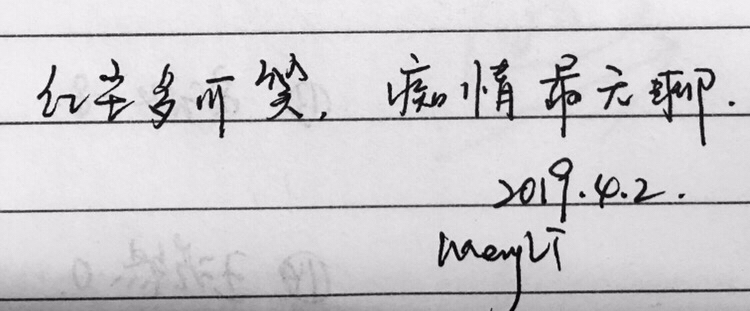 红尘多可笑, 痴情最无聊.
2019.4.2.